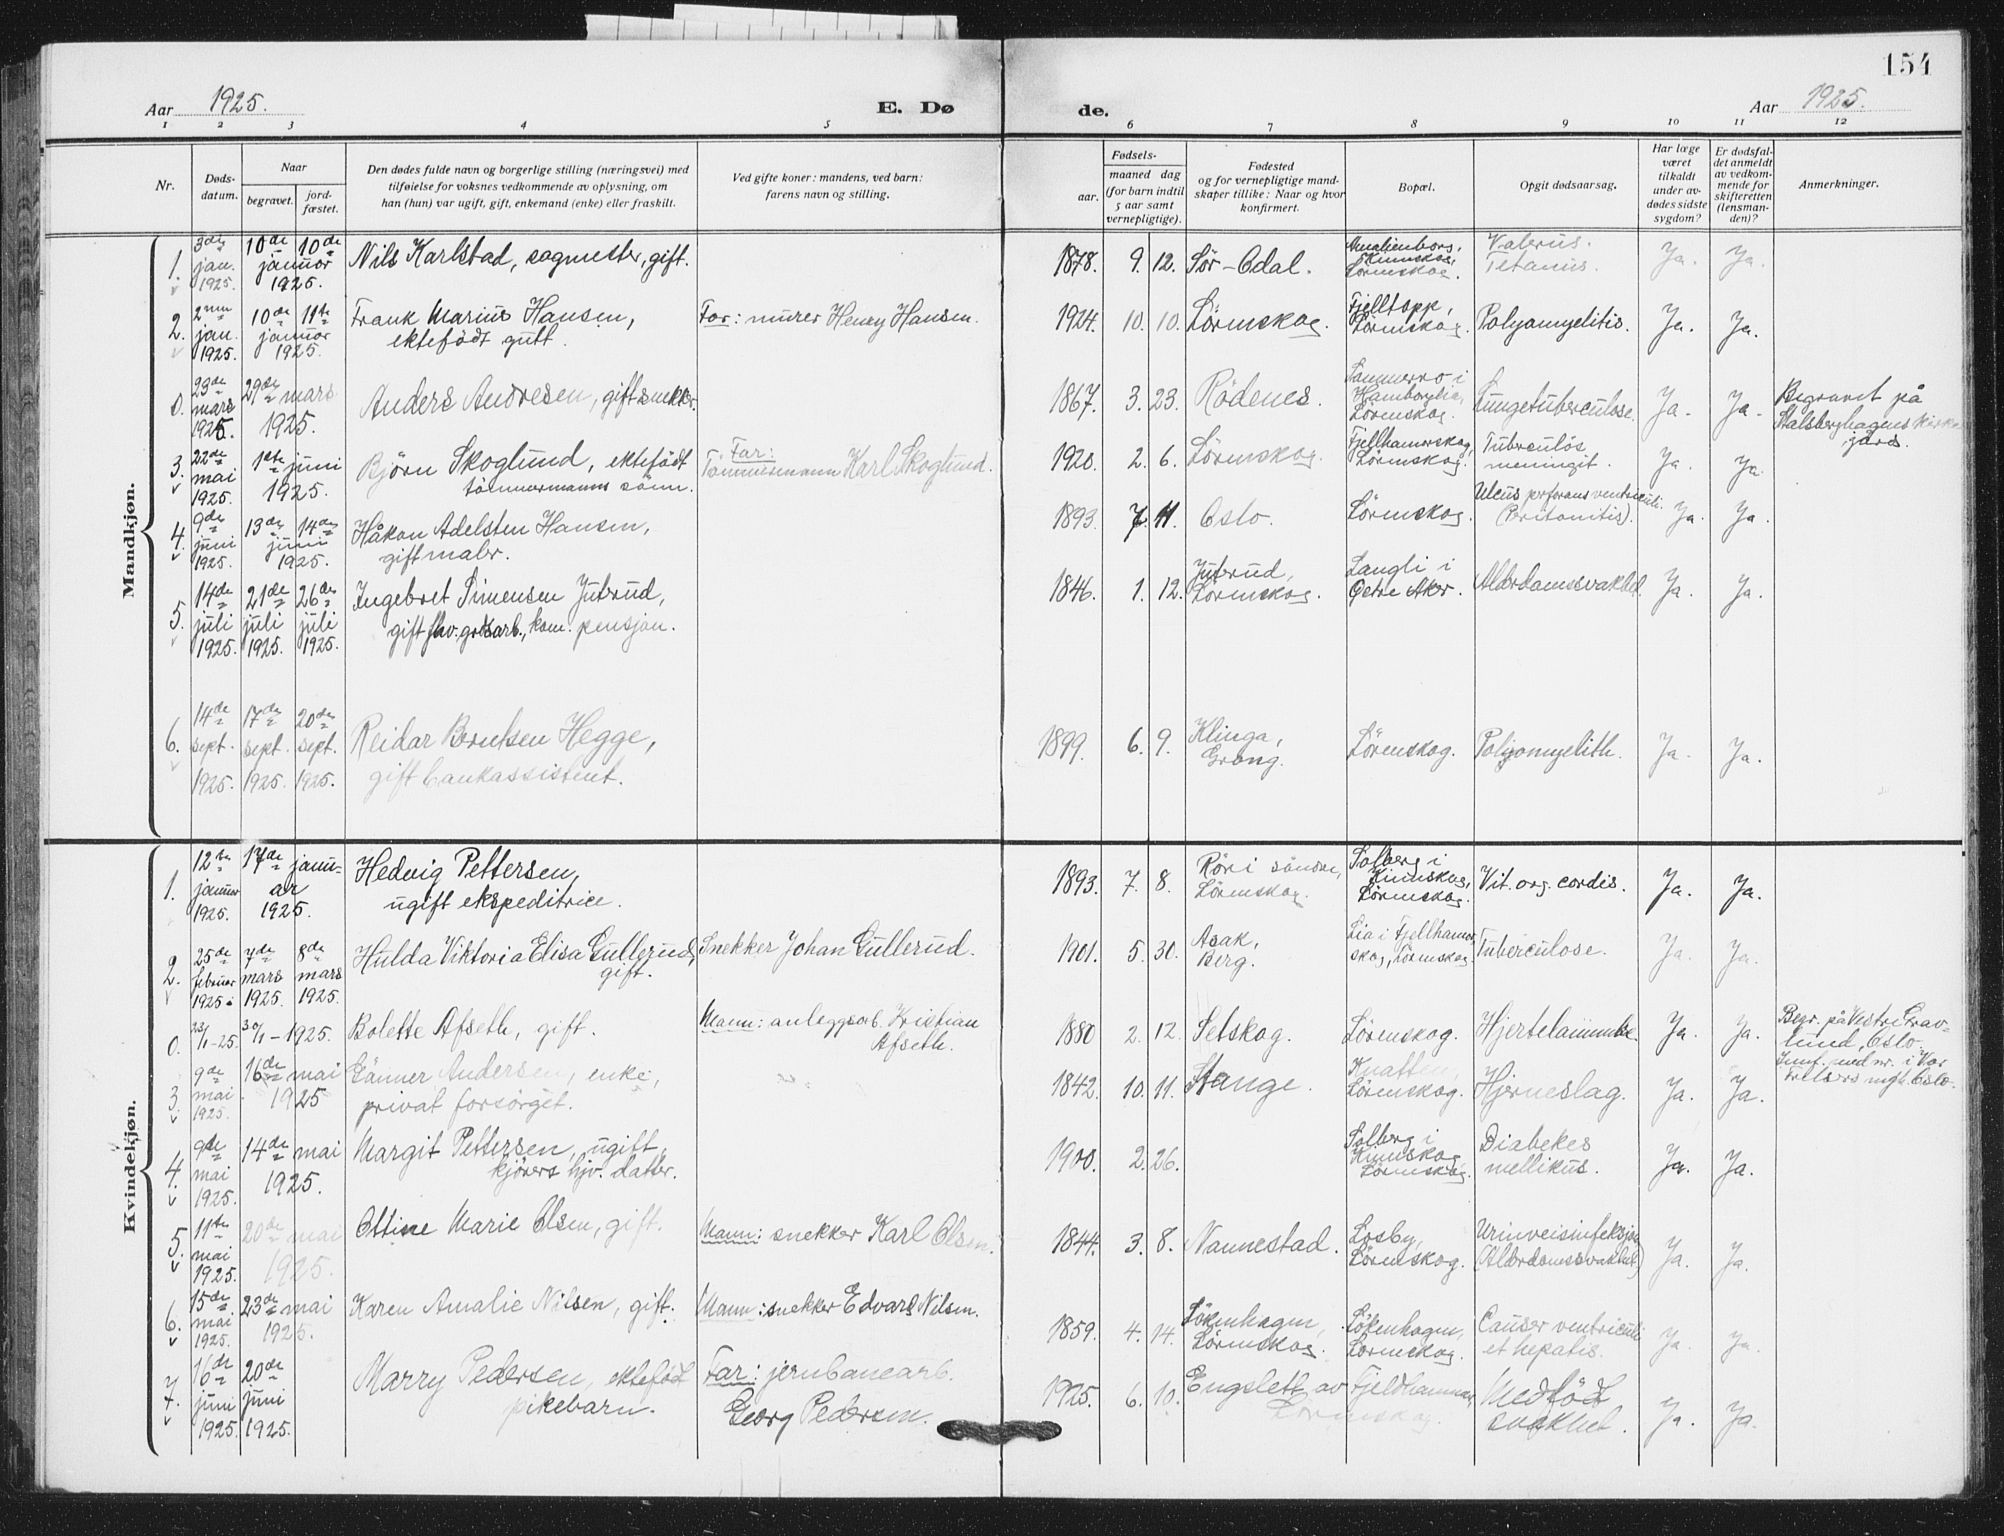 154
Aar 1925.
E. Dø de.
Aar 1925.
1 2 3 4 5 6 7 8 9 10 11 12
Nr.
Døds-datum.
Naar
begravet.
jord-fæstet.
Den dødes fulde navn og borgerlige stilling (næringsvei) med
tilføielse for voksnes vedkommende av oplysning, om
han (hun) var ugift, gift, enkemand (enke) eller fraskilt.
Ved gifte koner: mandens, ved barn:
farens navn og stilling.
Fødsels-
aar.
maaned dag
(for barn indtil
5 aar samt
vernepligtige).
Fødested
og for vernepligtige mand-
skaper tillike: Naar og hvor
konfirmert.
Bopæl.
Opgit dødsaarsag.
Har læge
været
tilkaldt
under av-
dødes sidste
sygdom?
Er dødsfal-
det anmeldt
av vedkom-
mende for
skifteretten
(lensman-
den)?
Anmerkninger.
Mandkjøn.
1. 3de jan. 1925. 10de januar 1925. 10de Nils Karlstad, sagmester, gift. 1878. 9. 12. Sör-Odal. Lörenskog. Tetanus. Ja. Ja.
2. 2nen jan. 1925. 10de januar 1925. 11te Frank Marius Hansen, Far: murer Henry Hansen. 1924. 10. 10. Lörenskog. Fjelltopp, Lörenskog. Polyomyelitis. Ja. Ja.
ektefödt gutt.
0. 23de mars 1925. 29de mars 1925. Anders Andresen, gift snekker. 1867. 3. 23. Rödenes. Lörenskog. Lungetuberculose. Ja. Ja. Begravet på
Stalsberghagens kirke-
gård.
3. 22de mai 1925. 1ste juni 1925. Björn Skoglund, ektefödt Far: Tömmermann Karl Skoglund. 1920. 2. 6. Lörenskog. Fjellhamarskog, Lörenskog. Tuberculös meningit. Ja. Ja.
tömmermanns sönn.
4. 9de juni 1925. 13de juni 1925. 14de Håkon Adelsten Hansen, 1893. 7. 11. Oslo. Lörenskog. Ulcus perforans ventriculi. (Peritonitis). Ja. Ja.
gift maler.
5. 14de juli 1925. 21de juli 1925. 26de juli 1925. Ingebret Simensen Juterud, 1846. 1. 12. Juterud, Lörenskog. Langli i Östre Aker. Alderdomssvakhet. Ja. Ja.
gift fhv. grdsarb., kom. pensjon.
6. 14de sept. 1925. 17de sept. 1925. 20de sept. 1925. Reidar Berntsen Hegge, 1899. 6. 9. Klinga, Grong. Lörenskog. Polyomyelith. Ja. Ja.
gift bankassistent.
Kvindekjøn.
1. 12te januar 1925. 17de januar 1925. Hedvig Pettersen, 1893. 7. 8. Rör i söndre, Lörenskog. Solberg i Kinnskog, Lörenskog. Vit. org. cordis. Ja. Ja.
ugift ekspeditrice.
2. 25de februar 1925. 7de mars 1925. 8de mars 1925. Hulda Viktoria Elisa Gullerud, Snekker Johan Gullerud. 1901. 5. 30. Asak, Berg. Lia i Fjellhamar-skog, Lörenskog. Tuberculose. Ja. Ja.
gift.
0. 23/1-25. 30/1-1925. Bolette Afseth, gift. Mann: anleggsarb. Kristian Afseth. 1880 2. 12. Setskog. Lörenskog. Hjertelammelse. Ja. Ja. Begr. på Vestre Grav-
lund, Oslo.
3. 9de mai 1925. 16de mai 1925 Gunner Andersen, enke, 1842. 10. 11. Stange. Knatten, Lörenskog. Hjerneslag. Ja. Ja. Innf. med nr. i Vår
Frelsers mgh. Oslo.
privat forsörget.
4. 9de mai 1925. 14de mai 1925. Margit Pettersen, ugift, 1900. 2. 26. Solberg i Kinnskog, Lörenskog. Diabetes mellitus. Ja. Ja.
kjörers hjv. datter.
5. 11te mai 1925. 20de mai 1925. Ottine Marie Olsen, gift. Mann: snekker Karl Olsen. 1844. 3. 8. Nannestad. Losby, Lörenskog. Urinveisinfeksjon (Alderdomssvakhet) Ja. Ja.
6. 15de mai 1925. 23de mai 1925. Karen Amalie Nilsen, gift. Mann: snekker Edvard Nilsen. 1859. 4. 14. Lökenhagen, Lörenskog. Lökenhagen, Lörenskog. Cancer ventriculi et hepatis. Ja. Ja.
7. 16de juni 1925. 20de juni 1925. Marry Pedersen, ektefödt Far: jernbanearb. Georg Pedersen. 1925. 6. 10. Engslett av Fjeldhammar, Lörenskog. Medfödt svakhet. Ja. Ja.
pikebarn.